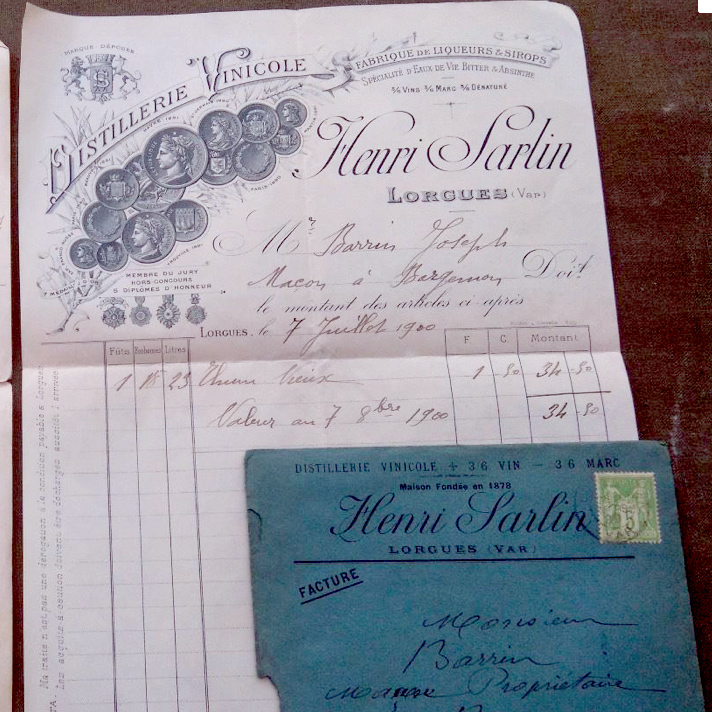 MARQUE DÉPOSÉE
DISTILLERIE VINICOLE
FABRIQUE DE LIQUEURS & SIROPS
SPÉCIALITÉ D'EAUX DE VIE BITTER & ABSINTHE
3/6 VINS 3/6 MARC 3/6 DÉNATURÉ
Henri Sarlin
LORGUES (VAR)
PARIS 1890
MEMBRE DU JURY
HORS CONCOURS
5 DIPLOMES D'HONNEUR
Mr Barrin Joseph
Maçon à Bargemon Doit
le montant des articles ci-après
LORGUES, le 7 Juillet 1900
Fûts Litres F C Montant
1 23 Rhum Vieux 1 50 34 50
Valeur au 7 8bre 1900 34 50
Ma traite n'est pas une dérogation à la condition payable à Lorgues
Les acquits à caution doivent être déchargés aussitôt
DISTILLERIE VINICOLE + 3/6 VIN — 3/6 MARC
Maison Fondée en 1878
Henri Sarlin
LORGUES (VAR)
5
FACTURE
Monsieur
Barrin
Propriétaire
à